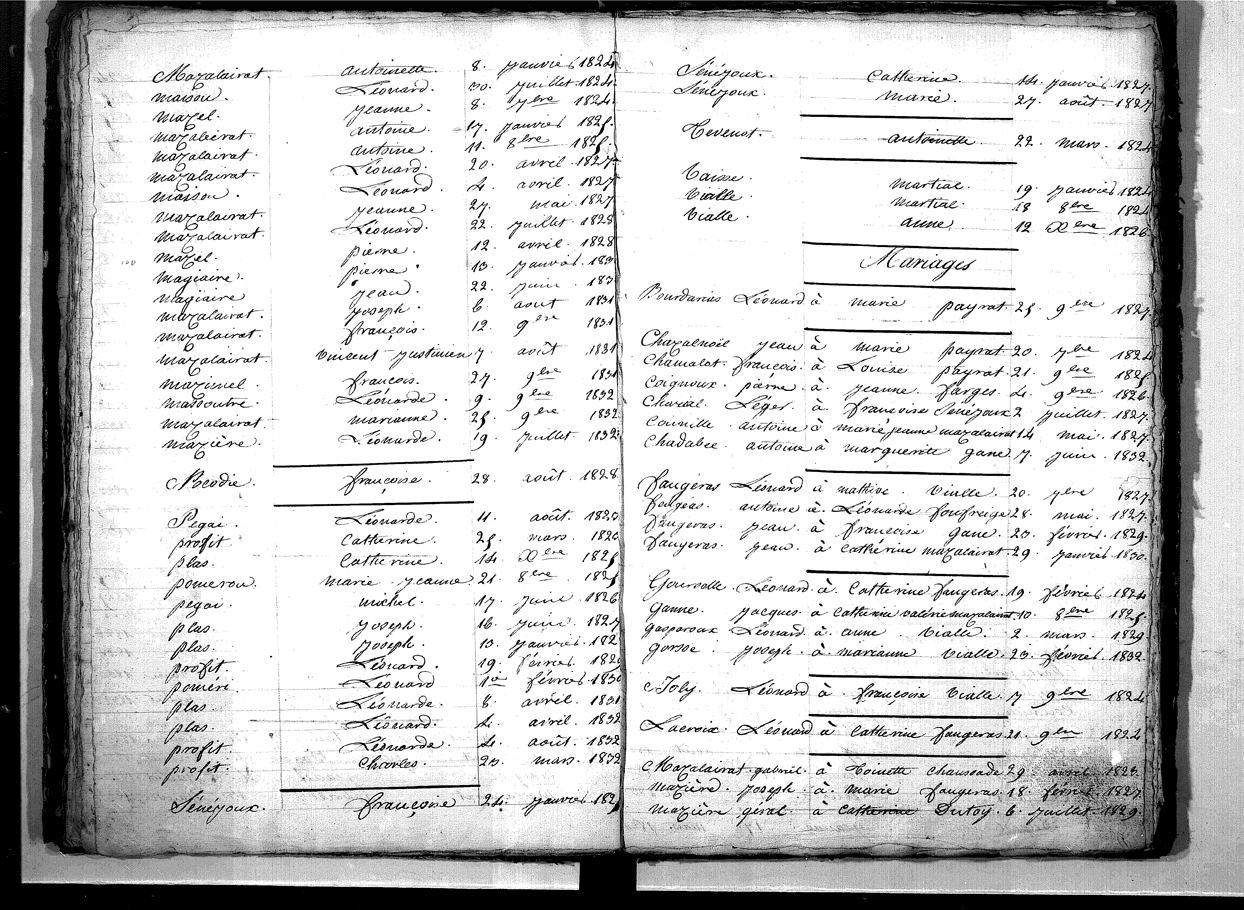 Mazalairat. antoinette. 8. janvier 1824
maison. Léonard. 30. juillet. 1824.
mazel. jeanne. 8. 7bre 1824.
mazalairat. antoine. 17. janvier 1825.
mazalairat. antoine. 11. 8bre 1825.
mazalairat. Léonard. 20. avril 1827.
maison. Léonard. 4. avril. 1827
mazalairat. jeanne. 27. mai. 1827
mazalairat. Léonard. 22. juillet 1828
mazel. pierre. 12. avril. 1828
magiaire. pierre. 13. janvier. 183
magiaire jean. 22. juin. 183
mazalairat. joseph. 6. août 1831
mazalairat. françois. 12. 9bre 1831
mazalairat. vincent justinien 7. août 1831
maziniel. francois. 27. 9bre 1831
massoutre. Léonarde. 9. 9bre 1832
mazalairat. marianne. 25. 9bre 1832.
mazière. Léonarde. 19. juillet 1832.
Neodie. françoise. 28. août 1828.
Pegai. Léonarde. 11. août. 1823
profit catherine. 25. mars. 1823
plas. catherine. 14. Xbre 1825
pomerou. marie jeanne 21. 8bre 1825
pegai. michel. 17. juin 1826
plas. joseph. 16. juin. 1827
plas. joseph. 13. janvier. 182
profit. Léonard. 19. février. 182
pomeri. Léonard 1er février 1830
plas. Léonarde. 6. avril. 1831
plas. Léonard. 4. avril. 1832
profit. Léonarde. 4. août. 1832
profit. charles. 23. mars. 1832
Sénéjoux. françoise 24. janvier 182
Sénéjoux. catherine 14. janvier 1827.
Sénéjoux. marie. 27. août 1827
Tevenot. antoinette. 22. mars. 1824
Vaisse. martial. 19. janvier 1824
Vialle. martial. 18 8bre 1824
Vialle. anne. 12 Xbre 1826.
Mariages
Bourdarias Léonard à marie payrat. 25. 9bre 1827.
Chazalnoil jean à marie payrat. 20. 7bre 1824
Chamalot. françois. à Louise payrat. 21. 9bre 1825
Coignoux. pierre à jeanne farges. 4. 9bre 1826.
Léger. à francoise Sénéjoux 2 juillet. 1827.
antoine à marie jeanne mazalairat 14 mai. 1827.
Chadabec antoine à marguerite gane. 7. juin. 1832.
faugeras Léonard à mathive. vialle. 20. 7bre 1827.
antoine à Léonarde foufreige 28. mai. 1827.
faugeras. jean. à francoise gane. 23. février. 1829.
faugeras. jean. à catherine mazalairat. 29. janvier 1830.
Goursolle Léonard. à catherine faugeras. 19. février 1824
ganne. jacques. à catherine valérie mazalairat. 10. 8bre 1825.
gasparoux Léonard à. anne vialle. 2. mars. 1829.
gorsse. joseph. à marianne vialle. 23. février. 1832.
Joly. Léonard à françoise vialle. 7 9bre 1824
Lacroix. Léonard à catherine faugeras. 21. 9bre 1822
Mazalairat. gabriel. à Toinette chaussade 29. avril. 1823.
mazière. joseph. à marie faugeras. 18. février. 1827.
mazière géral. à catherine Dutoy. 6. juillet. 1829.